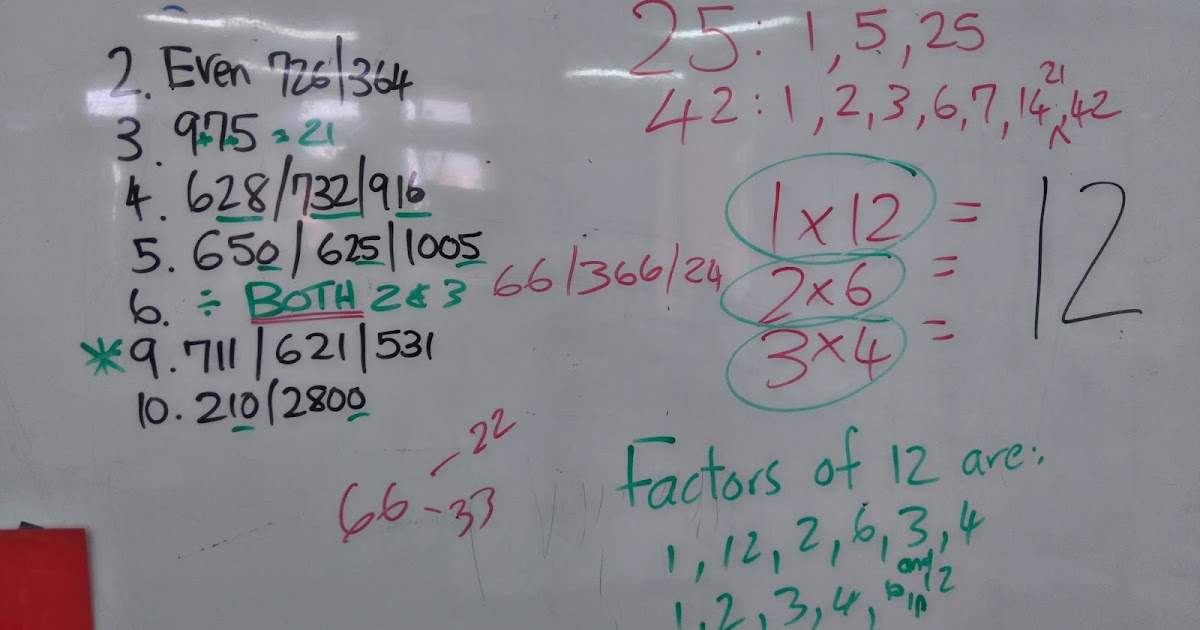 2. Even 726/364
3. 975 = 21
4. 628/732/916
5. 650/625/1005
6. ÷ BOTH 2 & 3 66/366/24
* 9. 711/621/531
10. 210/2800
66 - 22
- 33
25: 1, 5, 25
42: 1, 2, 3, 6, 7, 14, 21, 42
1 x 12 =
2 x 6 =
3 x 4 =
12
Factors of 12 are:
1, 12, 2, 6, 3, 4
1, 2, 3, 4, and 12